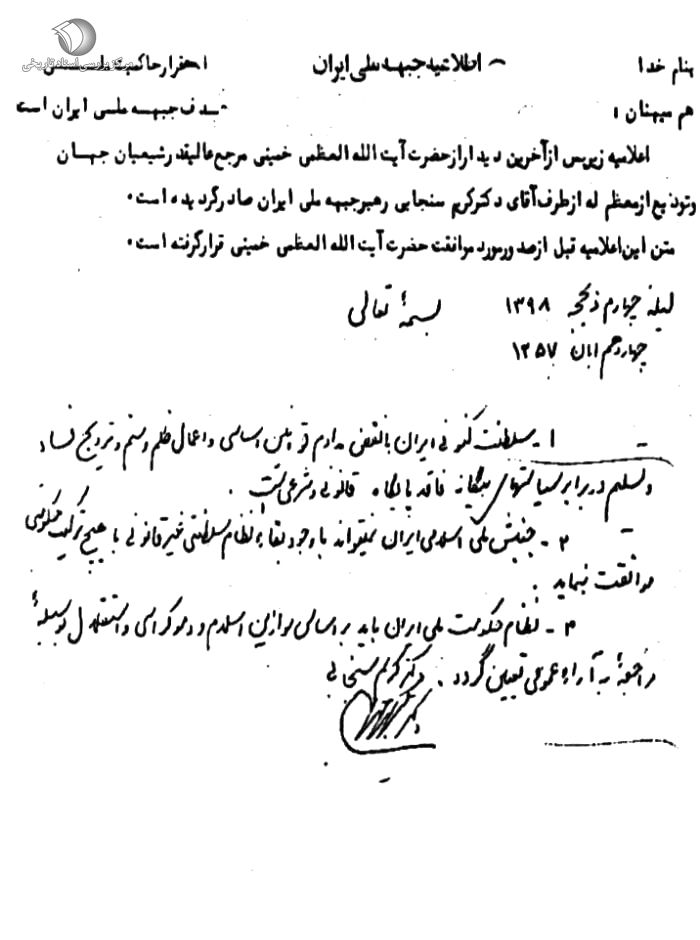 مرکز بررسی اسناد تاریخی
بنام خدا
اطلاعیه جبهه ملی ایران
استقرار حاکمیت ملی
هم میهنان :
هدف جبهه ملی ایران است
اعلامیه زیر پس از آخرین دیدار از حضرت آیت الله العظمی خمینی مرجع عالیقدر شیعیان جهان
وتودیع از معظم له از طرف آقای دکتر کریم سنجابی رهبر جبهه ملی ایران صادر گردیده است.
متن این اعلامیه قبل از صدور مورد موافقت حضرت آیت الله العظمی خمینی قرار گرفته است.
لیله چهارم ذیحجه ۱۳۹۸
بسمهٔ تعالی
چهاردهم ابان ۱۳۵۷
۱ - سلطنت کنونی ایران با نقض مداوم قوانین اساسی و اعمال ظلم و ستم و ترویج فساد
و تسلیم در برابر سیاستهای بیگانه فاقد پایگاه قانونی و شرعی است .
۲ - جنبش ملی اسلامی ایران نمیتواند با وجود بقاء نظام سلطنتی غیر قانونی با هیچ ترکیب حکومتی
موافقت نماید .
۳ - نظام حکومت ملی ایران باید بر اساس موازین اسلام و دموکراسی و استقلال بوسیلهٔ
مراجعهٔ به آراء عمومی تعیین گردد . دکتر کریم سنجابی